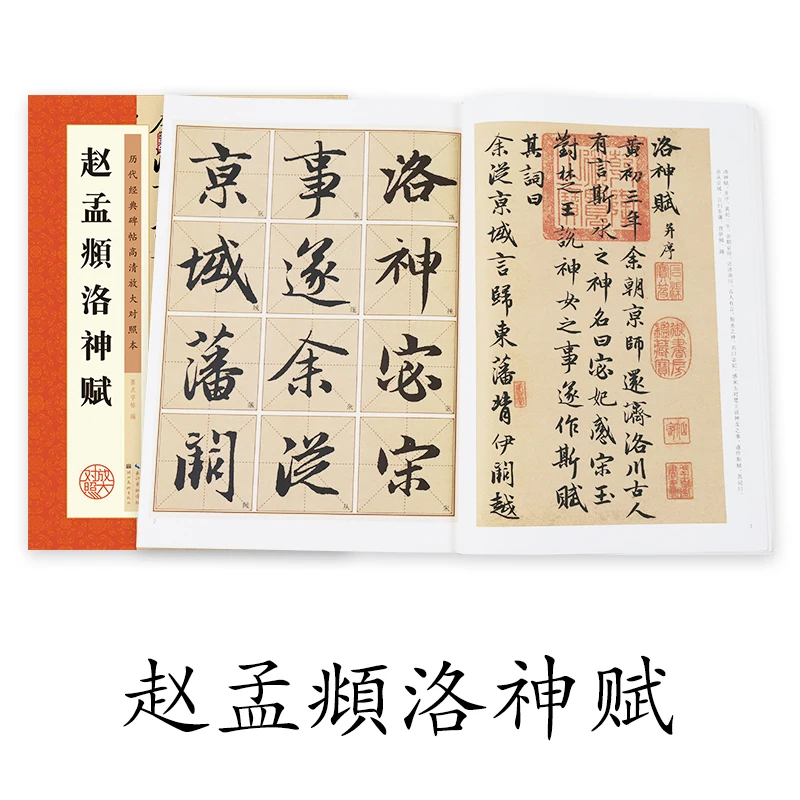 赵孟頫洛神赋
历代经典碑帖高清放大对照本
墨点字帖 编
放大对照
洛神宓宋
事遂余從
京域藩闕
洛神賦 并序
黄初三年余朝京師還濟洛川古人
有言斯水之神名曰宓妃感宋玉
對楚王說神女之事遂作斯賦
其詞曰
余從京域言歸東藩背伊闕越
赵孟頫洛神赋